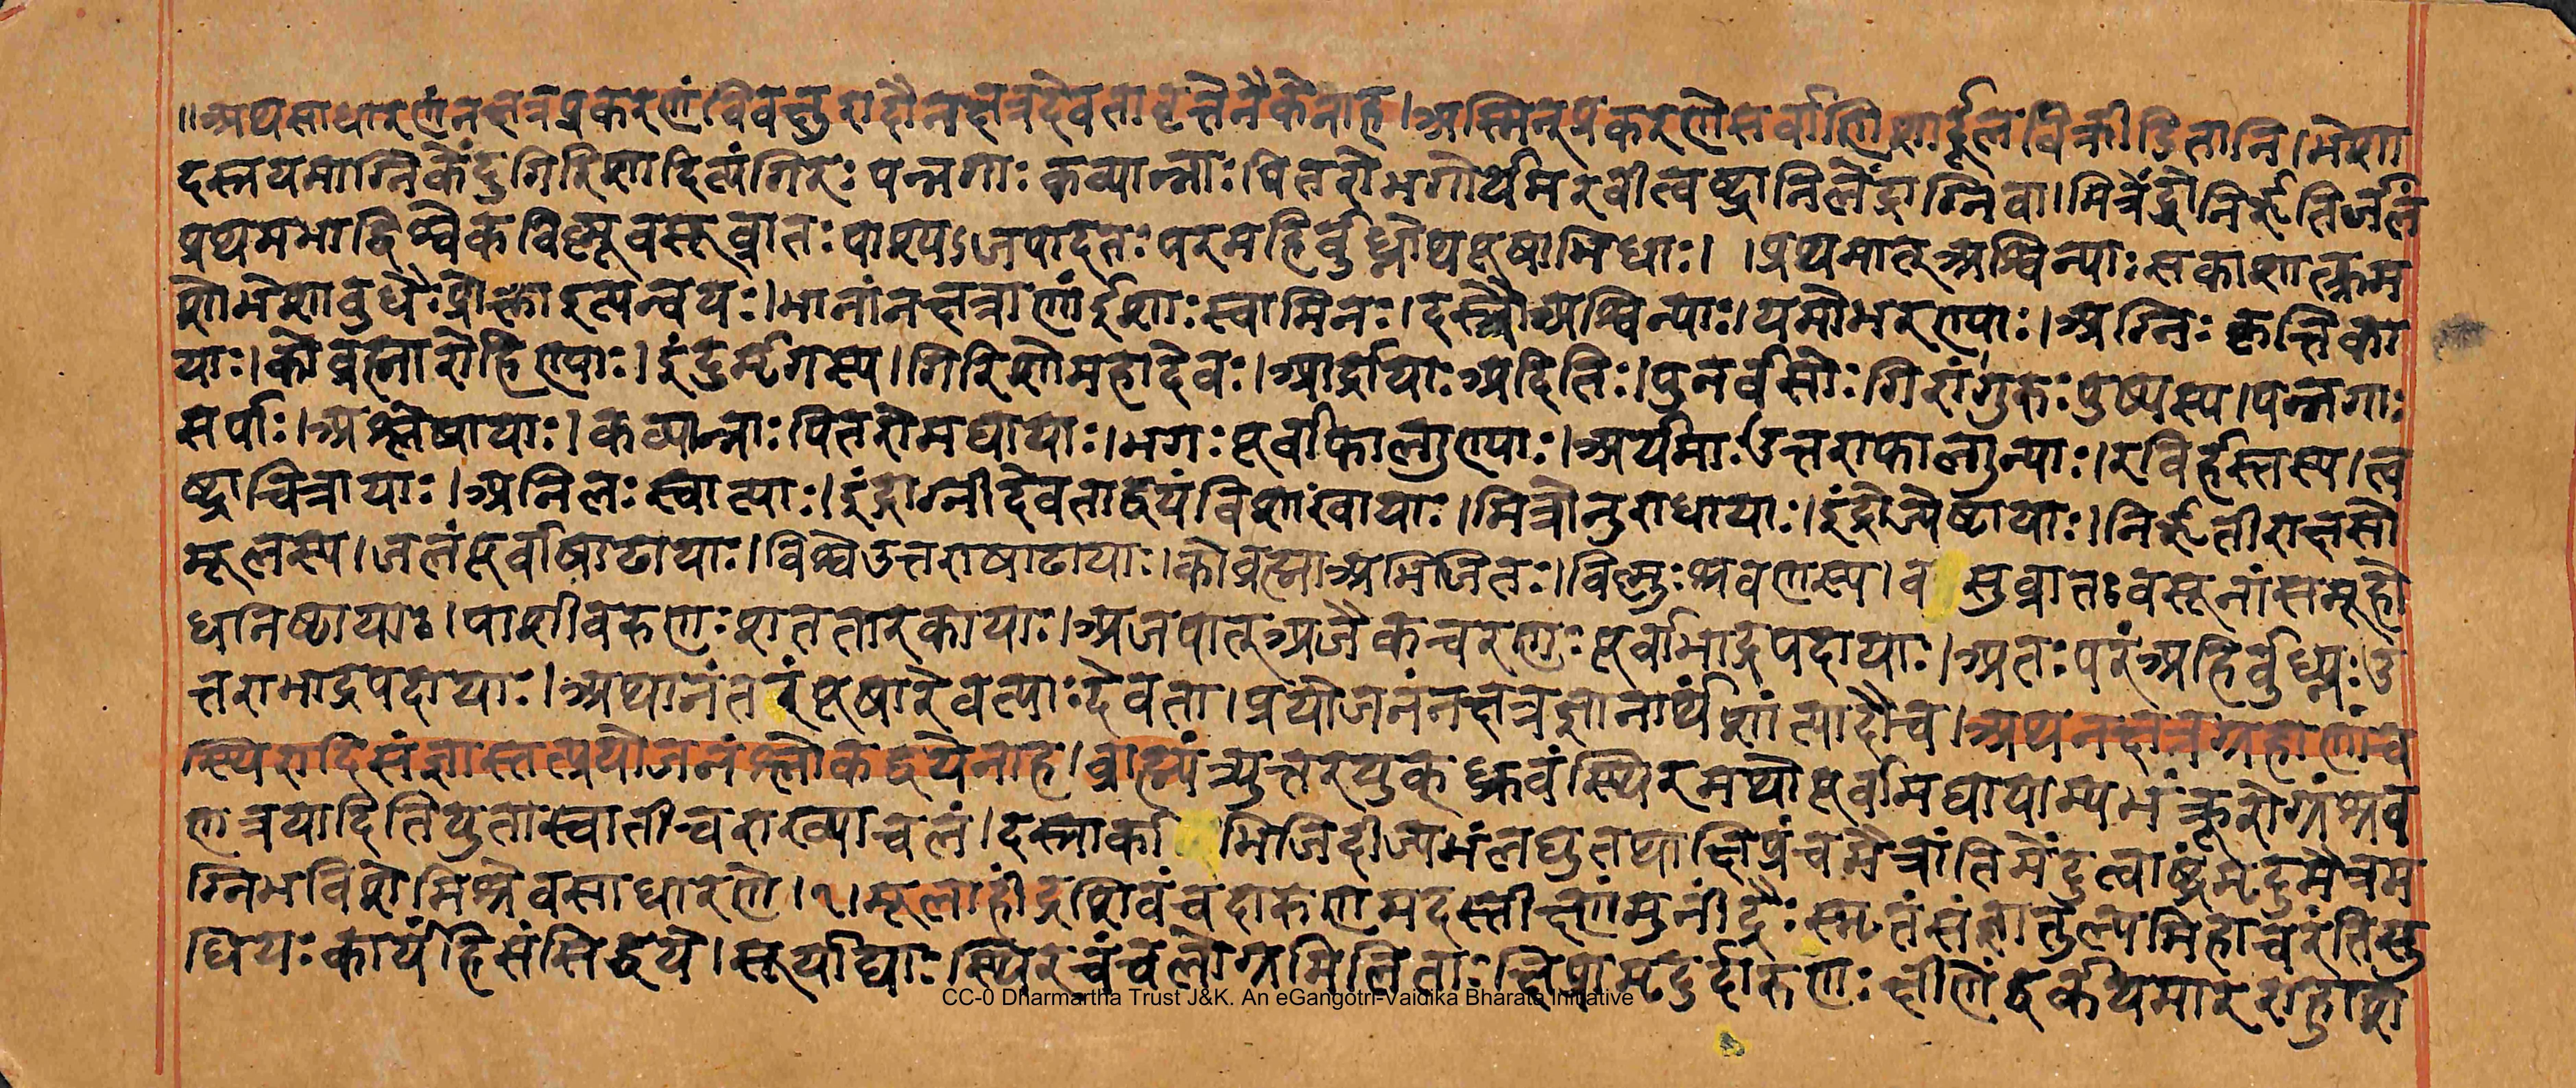 ॥अथसाधारणंनक्षत्रप्रकरणंविवक्षुरादौनक्षत्रदेवतावृत्तेनैकेनाह।अस्मिन्प्रकरणेसर्वाणिशार्दूलविक्रीडितानि।भेशा
दस्रयमाग्निकेंदुगिरिशादित्यंगिरः पन्नगाः कव्यान्नाः पितरोभगोर्यमरवीत्वष्ट्रानिलेंद्राग्निवा।मित्रेंद्रौनिरृतिर्जलं
प्रथमभाद्विश्वेकविष्णूवसूव्रातः पाश्यऽजपादतः परमहिर्बुध्नोथपूषाभिधाः। ।प्रथमात्अश्विन्याः सकाशात्क्रम
शोभेशाबुधैः प्रोक्ताइत्यन्वयः।भानांनक्षत्राणांईशाः स्वामिनः।दस्रौअश्विन्याः।यमोभरण्याः।अग्निः कृत्तिका
याः।कोब्रह्मारोहिण्याः।इंदुर्मृगस्य।गिरिशोमहादेवः।आर्द्रायाः अदितिः।पुनर्वसोः गिरांगुरुः पुष्यस्य।पन्नगाः
सर्पाः।अश्लेषायाः।कव्यान्नाः पितरोमघायाः।भगः पूर्वाफाल्गुण्याः।अर्यमाः उत्तराफाल्गुन्याः।रविर्हस्तस्य।त्व
ष्ट्राचित्रायाः।अनिलः स्वात्याः।इंद्राग्नीदेवताद्वयंविशाखायाः।मित्रोनुराधायाः।इंद्रोज्येष्टायाः।निरृतीराक्षसो
मूलस्य।जलंपूर्वाषाढायाः।विश्वेउत्तराषाढायाः।कोब्रह्माअभिजितः।विष्णुः श्रवणस्य।व सुव्रातः वसूनांसमूहो
धनिष्ठायाः।पाशीवरुणः शततारकायाः।अजपात्अजैकचरणः पूर्वाभाद्रपदायाः।अतः परंअहिर्बुध्न्यः उ
त्तराभाद्रपदायाः।अथानंतरंपूषारेवत्याः देवता।प्रयोजनंनक्षत्रज्ञानार्थंशांत्यादौच।अथनक्षत्रग्रहाणांच
स्थिरादिसंज्ञास्तत्प्रयोजनंश्लोकद्वयेनाह।ब्राह्म्यंत्र्युत्तरयुक् ध्रुवंस्थिरमथोपूर्वामघायाम्यभंक्रूरोग्रंश्रव
णत्रयादितियुतास्वातीचराख्याचलं।दस्रार्का भिजिदीज्यभंलघुतथाक्षिप्रंचमैत्रांतिमेंदुत्वाष्ट्रंमृदुमैत्रम
ग्निभविशेमिश्रेवसाधारणे।१।मूलाहींद्रशिवंचदारुणमदस्तीक्ष्णंमुनींद्रैः स्मृतंसंज्ञातुल्यमिहाचरंतिसु
धियः कार्यंहिसंसिद्धये।सूर्याद्याः स्थिरचंचलोग्रमिलिताः क्षिप्रामृदुर्दारुणः क्षीणेंद्वर्कयमारराहुशि
CC-0 Dharmartha Trust J&K. An eGangotri-Vaidika Bharata Initiative